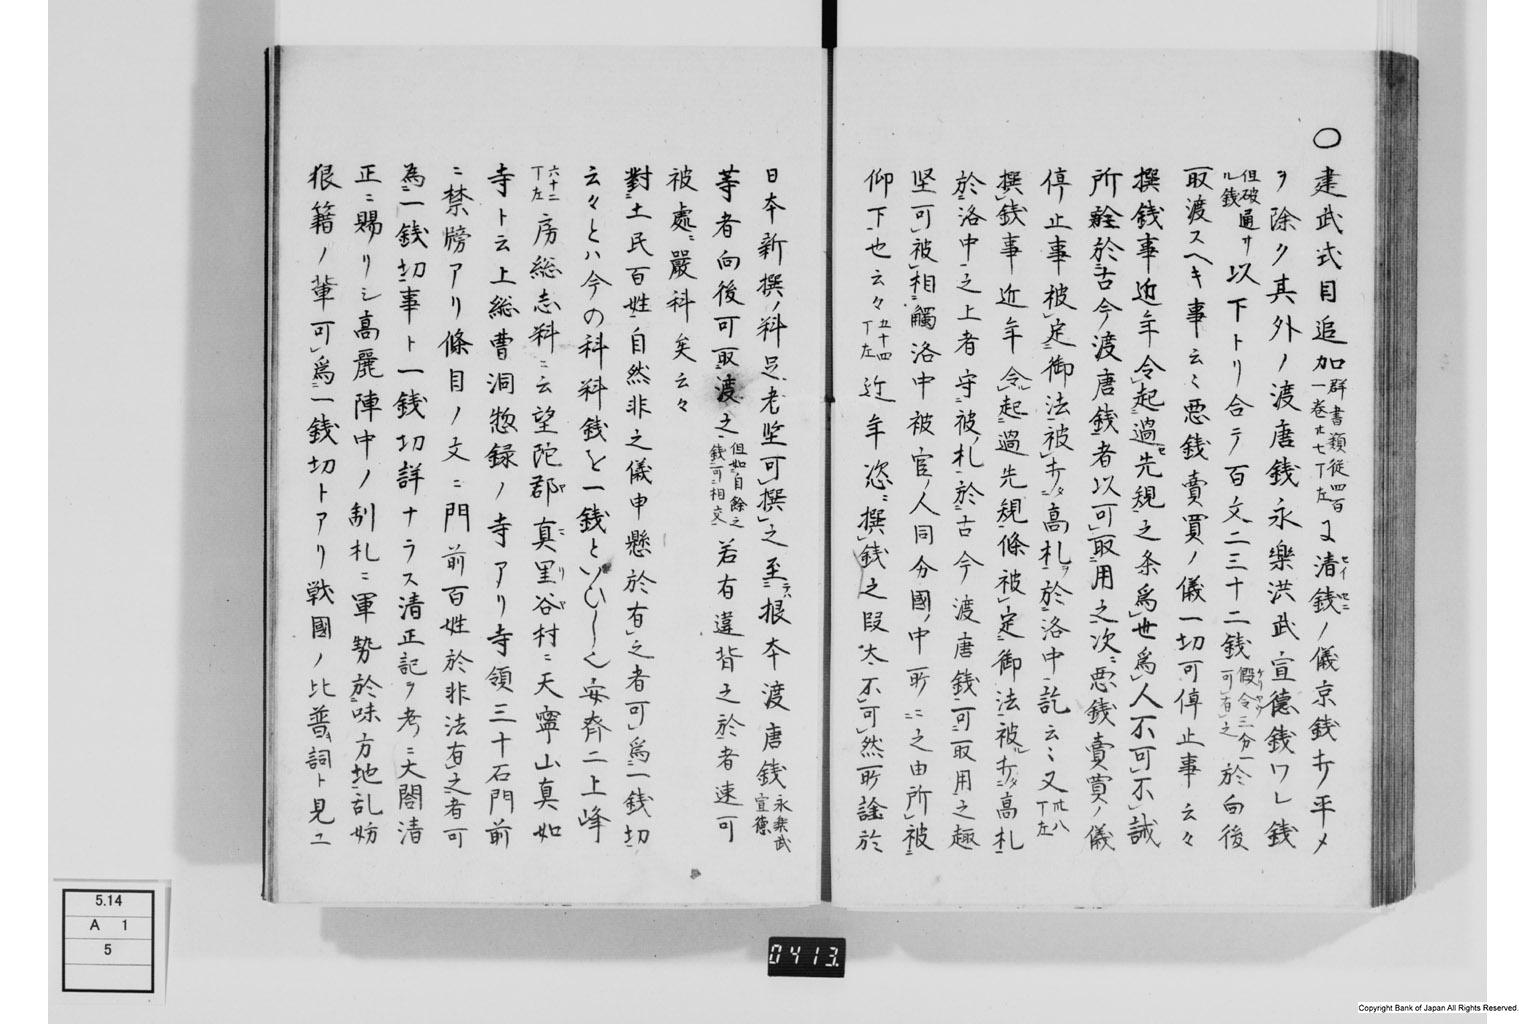 〇建武式目追加群書類従四百一巻廿七丁左ニ清銭ノ儀京銭打平メ
ヲ除ク其外ノ渡唐銭永樂洪武宣徳銭ワレ銭
但破ル銭通サ以下トリ合テ百文ニ三十二銭假令三分一可有之於向後
取渡スヘキ事云々悪銭賣買ノ儀一切可停止事云々
撰銭事近年令起過先規之条為世為人不可不誡
所詮於古今渡唐銭者以可取用之次ニ悪銭賣買ノ儀
停止事被定御法被打高札ヲ於洛中訖云々又廿八丁左
撰銭事近年令起過先規條被定御法被打高札
於洛中之上者守被札於古今渡唐銭可取用之趣
堅可被相觸洛中被官ノ人同分國ノ中所々ニ之由所被
仰下也云々五十四丁左近年恣ニ撰銭之段太不可然所詮於
日本新撰ノ料足者堅可撰之至ラハ根本渡唐銭永楽洪武宣徳
等者向後可取渡之但如自餘之銭可相交若有違背之於者速可
被處ニ嚴科矣云々
對土民百姓自然非之儀申懸於有之者可為一銭切
云々とハ今の科料銭を一銭といひし也安齊ニ上峰
六十二丁左房総志料ニ云望陀郡真里谷村ニ天寧山真如
寺ト云上総曹洞惣録ノ寺アリ寺領三十石門前
ニ禁牓アリ條目ノ文ニ門前百姓於非法有之者可
為一銭切事ト一銭切詳ナラス清正記ヲ考ニ大閤清
正ニ賜リシ高麗陣中ノ制札ニ軍勢於味方地乱妨
狼籍ノ輩可為一銭切トアリ戦國ノ比普キ詞ト見ユ
0413
5.14
A 1
5
Copyright Bank of Japan All Rights Reserved.